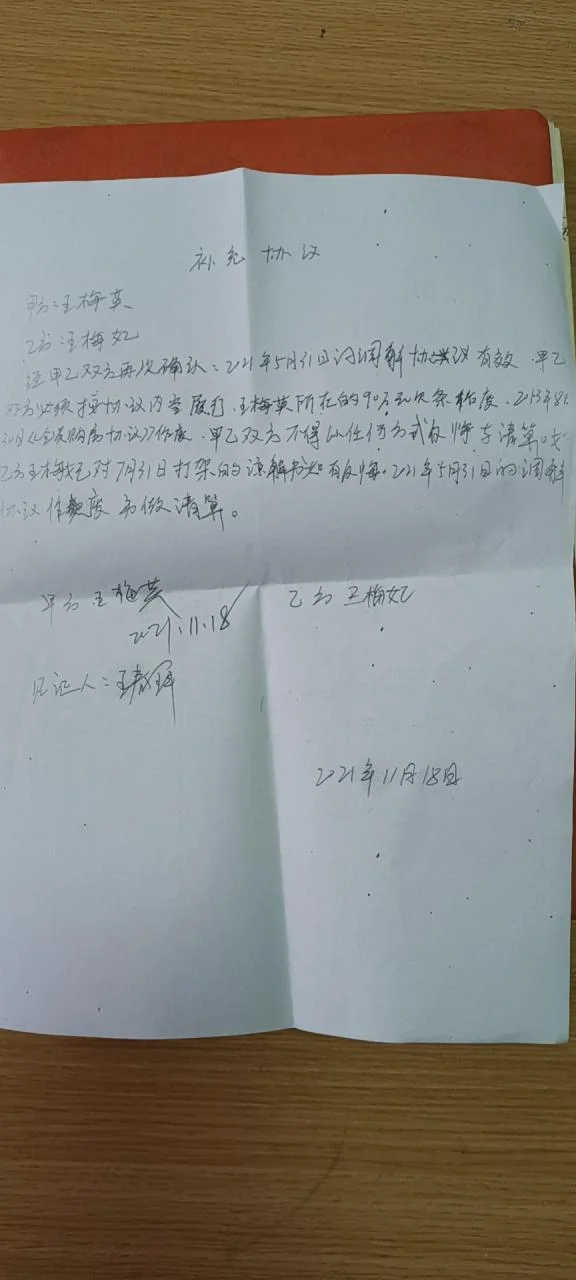 补充协议
甲方：王梅英
乙方：王梅妃
经甲乙双方再次确认：2021年5月31日的调解协议有效，甲乙
双方必须按协议内容履行，王梅英所在的90万元欠条作废，2013年8月
30日《合资购房协议》作废，甲乙双方不得以任何方式反悔与清算，
乙方王梅妃已对7月31日打架的谅解书如有反悔，2021年5月31日的调解
协议作废 另做清算。
甲方 王梅英
2021.11.18
乙方 王梅妃
见证人：王
2021年11月18日